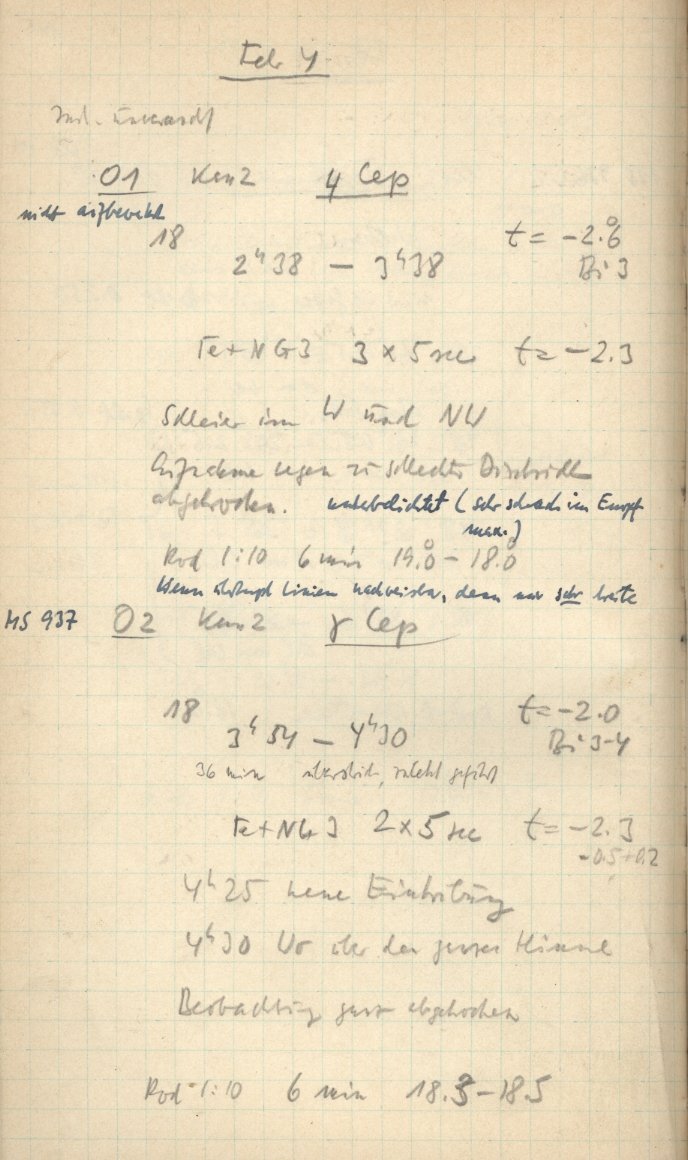 Feb 4
Inst. unverändert
O1 Kam2 γ Cep
nicht aufbewahrt
18 t = -2.°6
2ʰ38 – 3ʰ38 Bi 3
Fe+NG3 3 x 5 sec t = -2.3
Schleier im W und NW
Aufnahme wegen zu schlechter Durchsicht
abgebrochen. unterbelichtet (sehr schwach im Empf
max.)
Rod 1:10 6 min 19.°0 – 18.°0
Wenn überhaupt Linien nachweisbar, dann nur sehr breite
HS 937 O2 Kam2 γ Cep
18 t = -2.0
3ʰ54 – 4ʰ30 Bi 3-4
36 min zuletzt
Fe+NG3 2 x 5 sec t = -2.3
-0.5+0.2
4ʰ25 neue Eintrübung
4ʰ30 über den ganzen Himmel
Beobachtung ganz abgebrochen
Rod 1:10 6 min 18.3 – 18.5